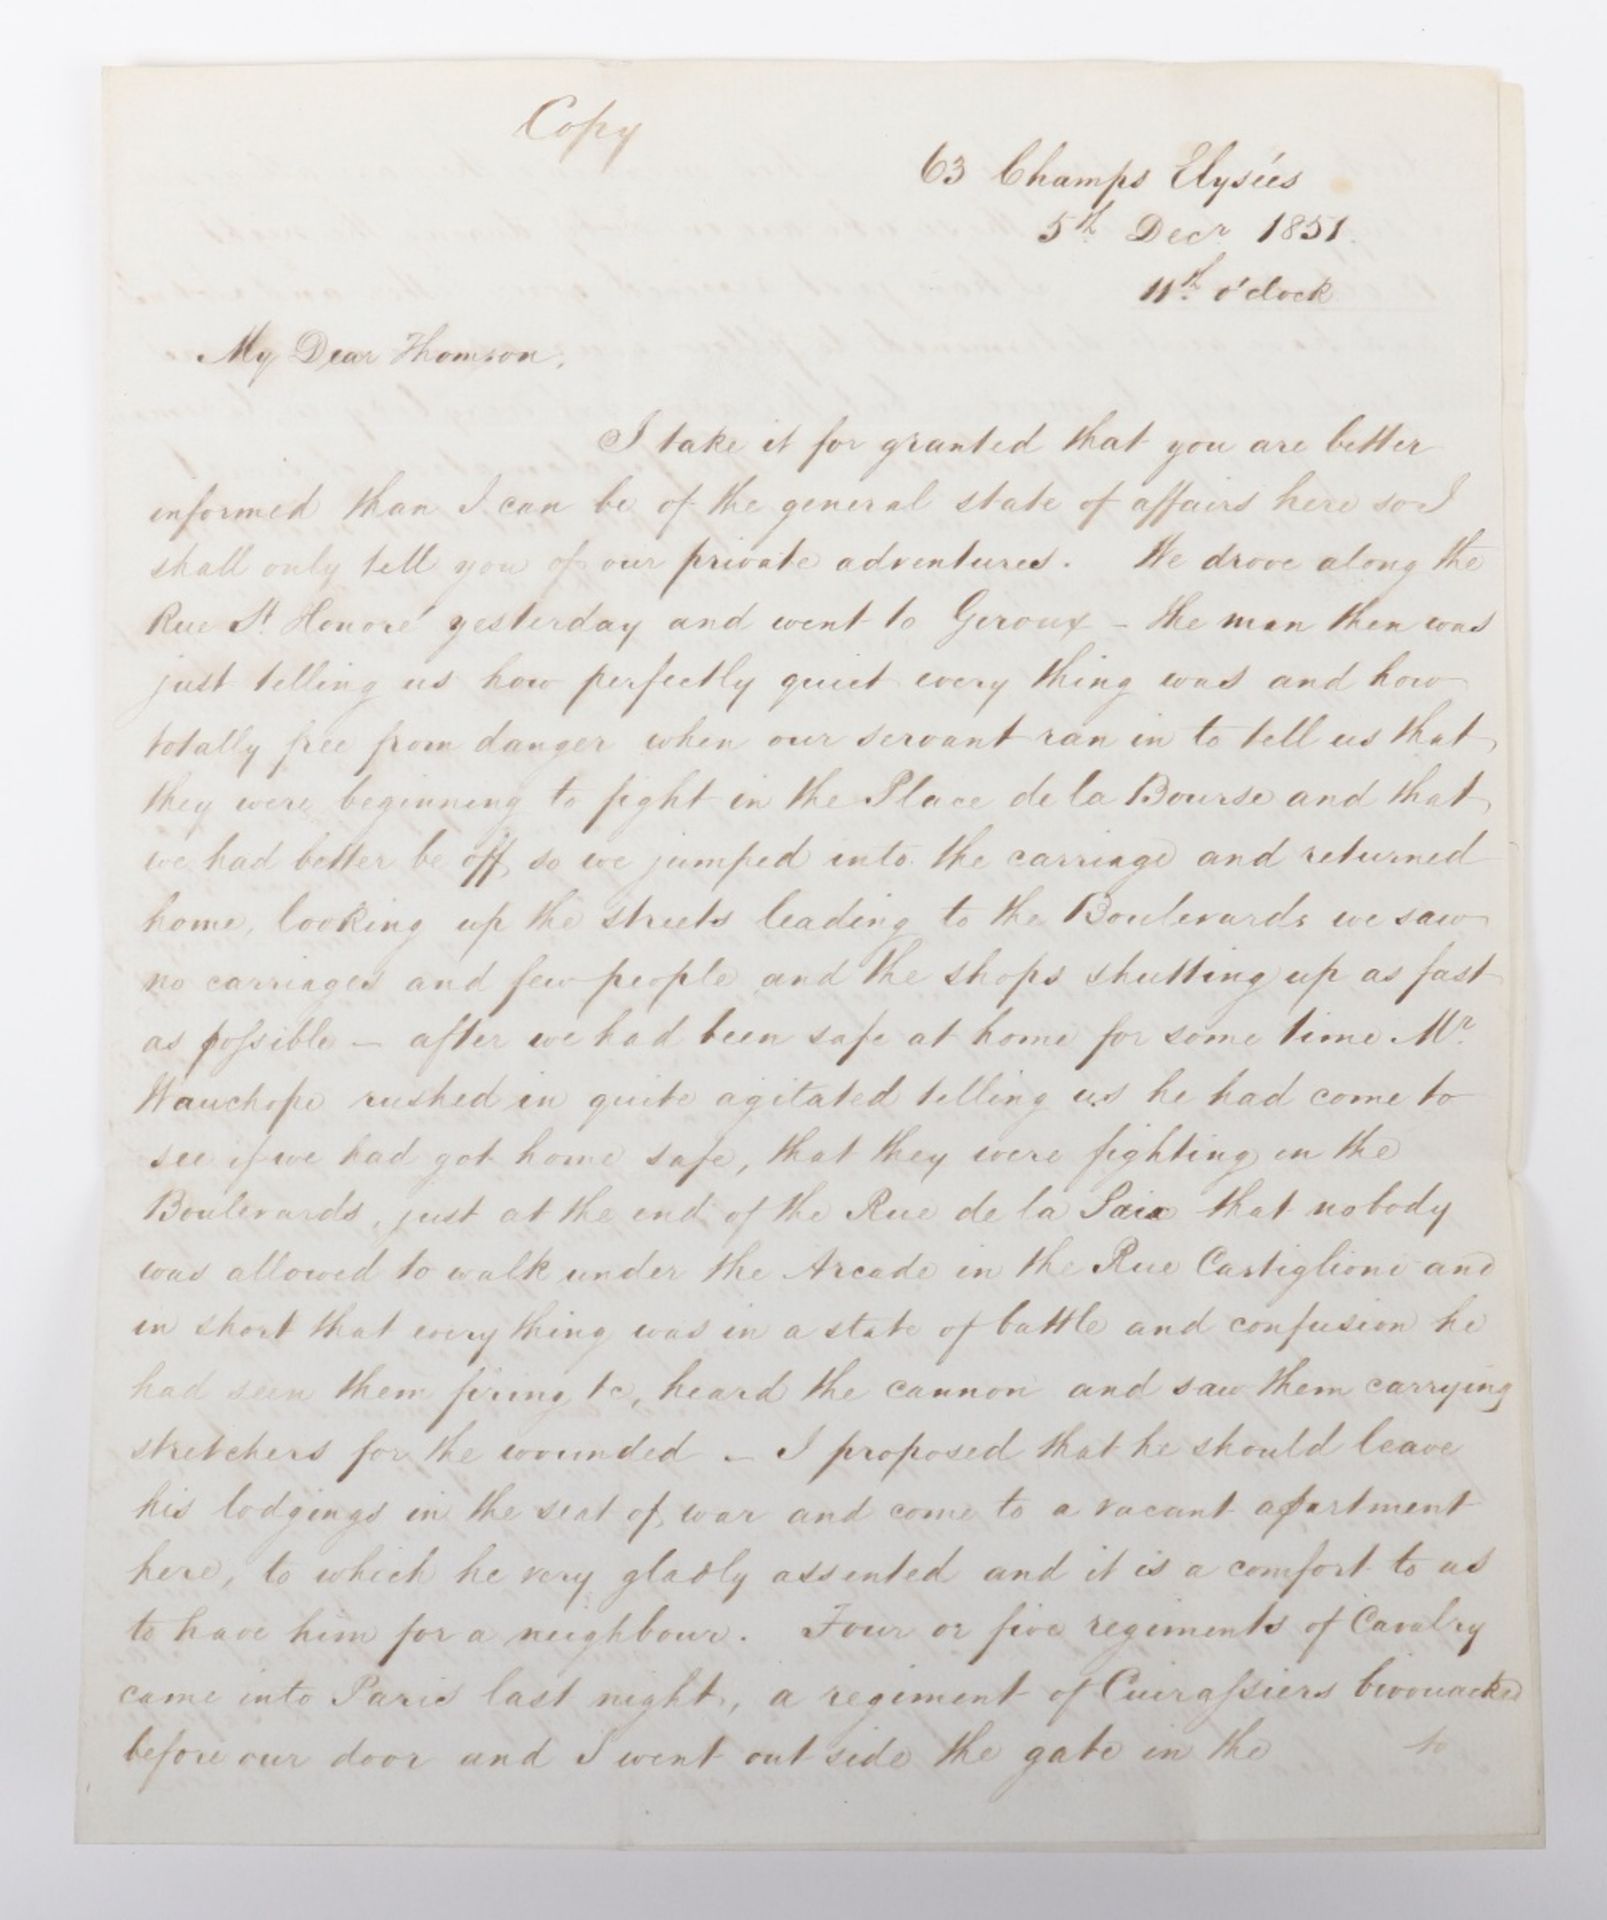 Copy
63 Champs Elysées
5th Decr 1851.
11th o'clock
My Dear Thomson,
I take it for granted that you are better
informed than I can be of the general state of affairs here so I
shall only tell you of our private adventures. We drove along the
Rue St. Honoré yesterday and went to Giroux – the man then was
just telling us how perfectly quiet every thing was and how
totally free from danger when our servant ran in to tell us that
they were beginning to fight in the Place de la Bourse and that
we had better be off, so we jumped into the carriage and returned
home, looking up the streets leading to the Boulevards we saw
no carriages and few people and the shops shutting up as fast
as possible – after we had been safe at home for some time Mr.
Wauchope rushed in quite agitated telling us he had come to
see if we had got home safe, that they were fighting in the
Boulevards, just at the end of the Rue de la Paix that nobody
was allowed to walk under the Arcade in the Rue Castiglioni and
in short that every thing was in a state of battle and confusion he
had seen them firing &c, heard the cannon and saw them carrying
stretchers for the wounded – I proposed that he should leave
his lodgings in the seat of war and come to a vacant apartment
here, to which he very gladly assented and it is a comfort to us
to have him for a neighbour. Four or five regiments of Cavalry
came into Paris last night, a regiment of Cuirassiers bivouacked
before our door and I went out side the gate in the to